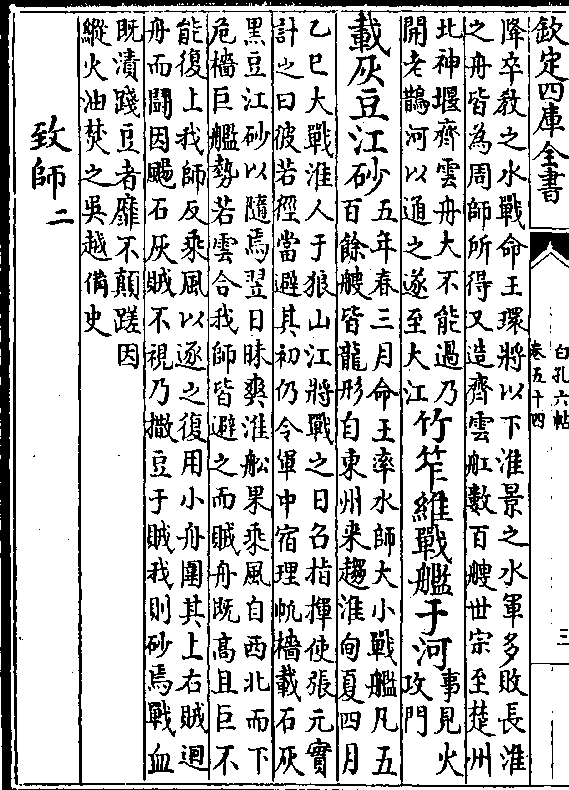 欽定四庫全書
白孔六帖
卷五十四
三
降卒教之水戰命王環將以下淮景之水軍多敗長淮
之舟皆為周師所得又造齊雲舡數百艘世宗至楚州
北神堰齊雲舟大不能過乃
開老鵲河以通之遂至大江
竹笮維戰艦于河
事見火
攻門
載灰豆江砂
五年春三月命王率水師大小戰艦凡五
百餘艘皆龍形自東州来趨淮甸夏四月
乙巳大戰淮人于狼山江將戰之日召指揮使張元實
計之曰彼若徑當避其初仍令軍中宿理帆檣載石灰
黑豆江砂以隨焉翌日昧爽淮舩果乘風自西北而下
危檣巨艦勢若雲合我師皆避之而賊舟既髙且巨不
能復上我師反乘風以逐之復用小舟圍其上右賊迴
舟而鬪因颺石灰賊不視乃撒豆于賊我則砂焉戰血
既漬踐豆者靡不顛蹉因
縱火油焚之吳越備史
致師二